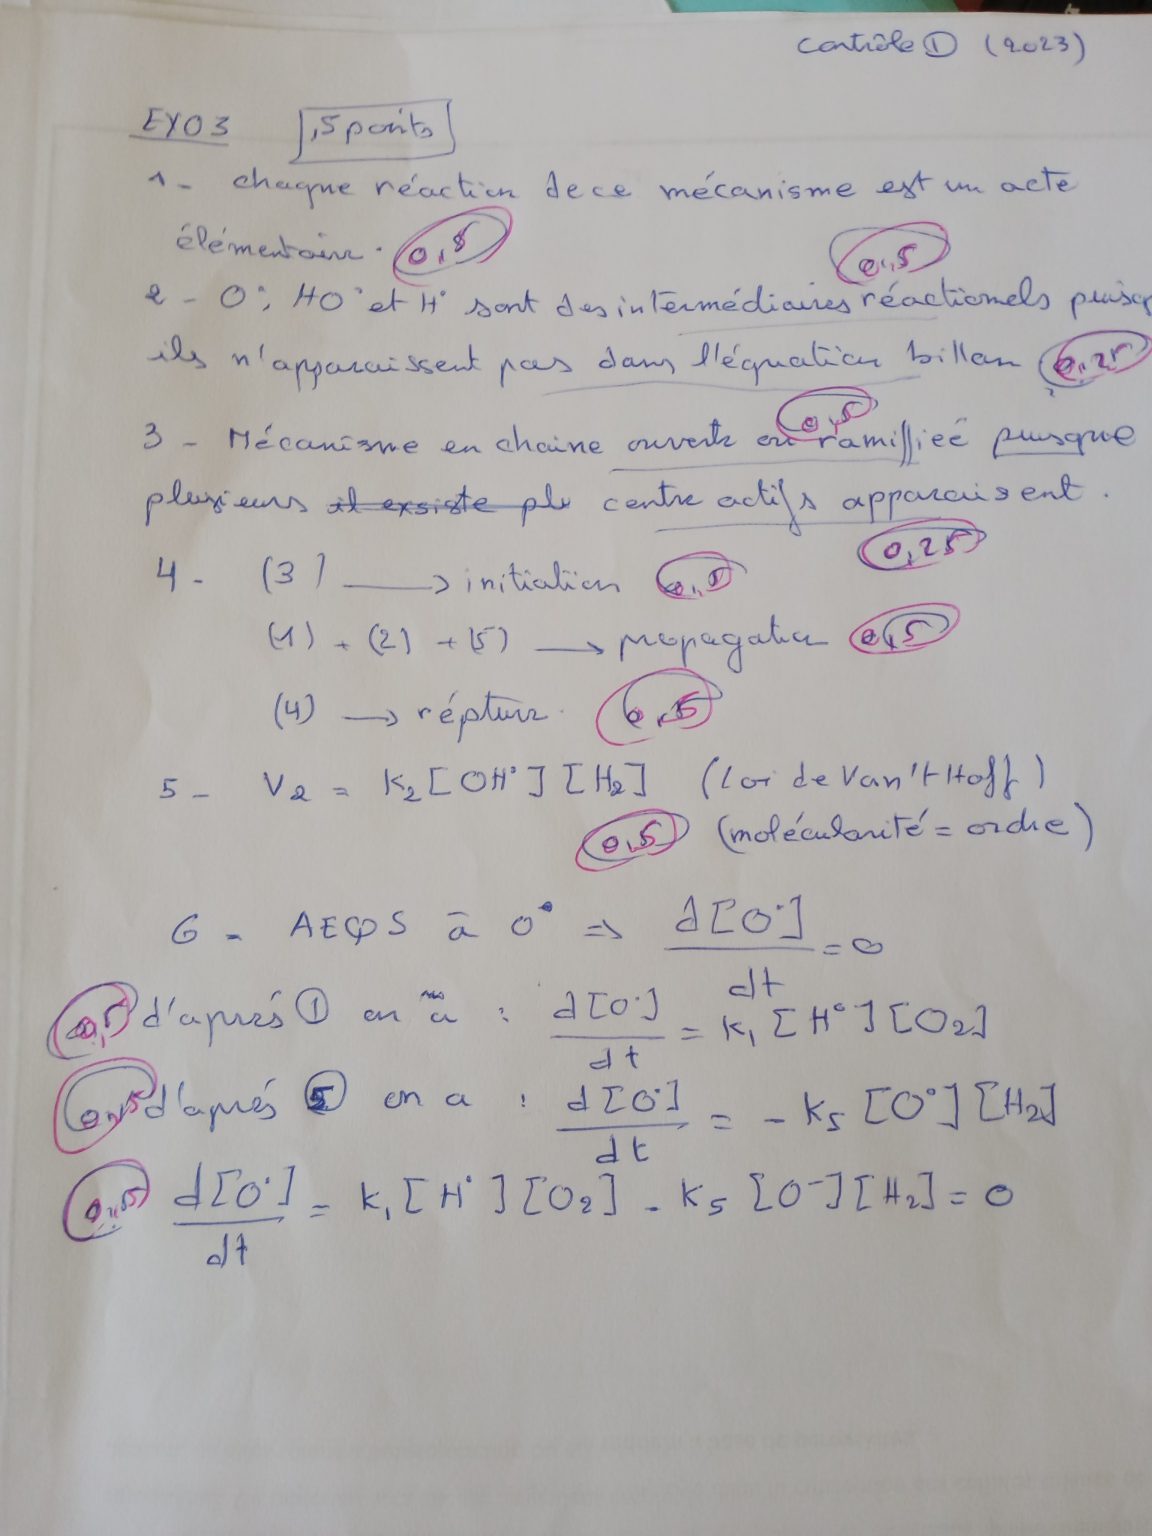 Contrôle ① (2023)
EXO3 ,5 points
1 - chaque réaction de ce mécanisme est un acte
élémentaire. 0,5
0,5
2 - O°; HO° et H° sont des intermédiaires réactionels puisq
ils n'apparaissent pas dans l'équation billan 0,25
0,5
3 - Mécanisme en chaine ouverte ou ramifieé puisque
plusieurs il exsiste plu centre actifs apparaisent.
0,25
4 - (3) → initiation
(1) + (2) + (5) → propagation 0,5
(4) → répture. 0,5
5 - V2 = K2 [OH°] [H2] (Loi de Van't Hoff)
0,5 (molécularité = ordre)
6 - AEQS à O° => d[O°]/dt = 0
0,5 d'aprés ① on a : d[O°]/dt = K1 [H°] [O2]
d'aprés ⑤ on a : d[O°]/dt = - K5 [O°] [H2]
d[O°]/dt = K1 [H°] [O2] - K5 [O-] [H2] = 0